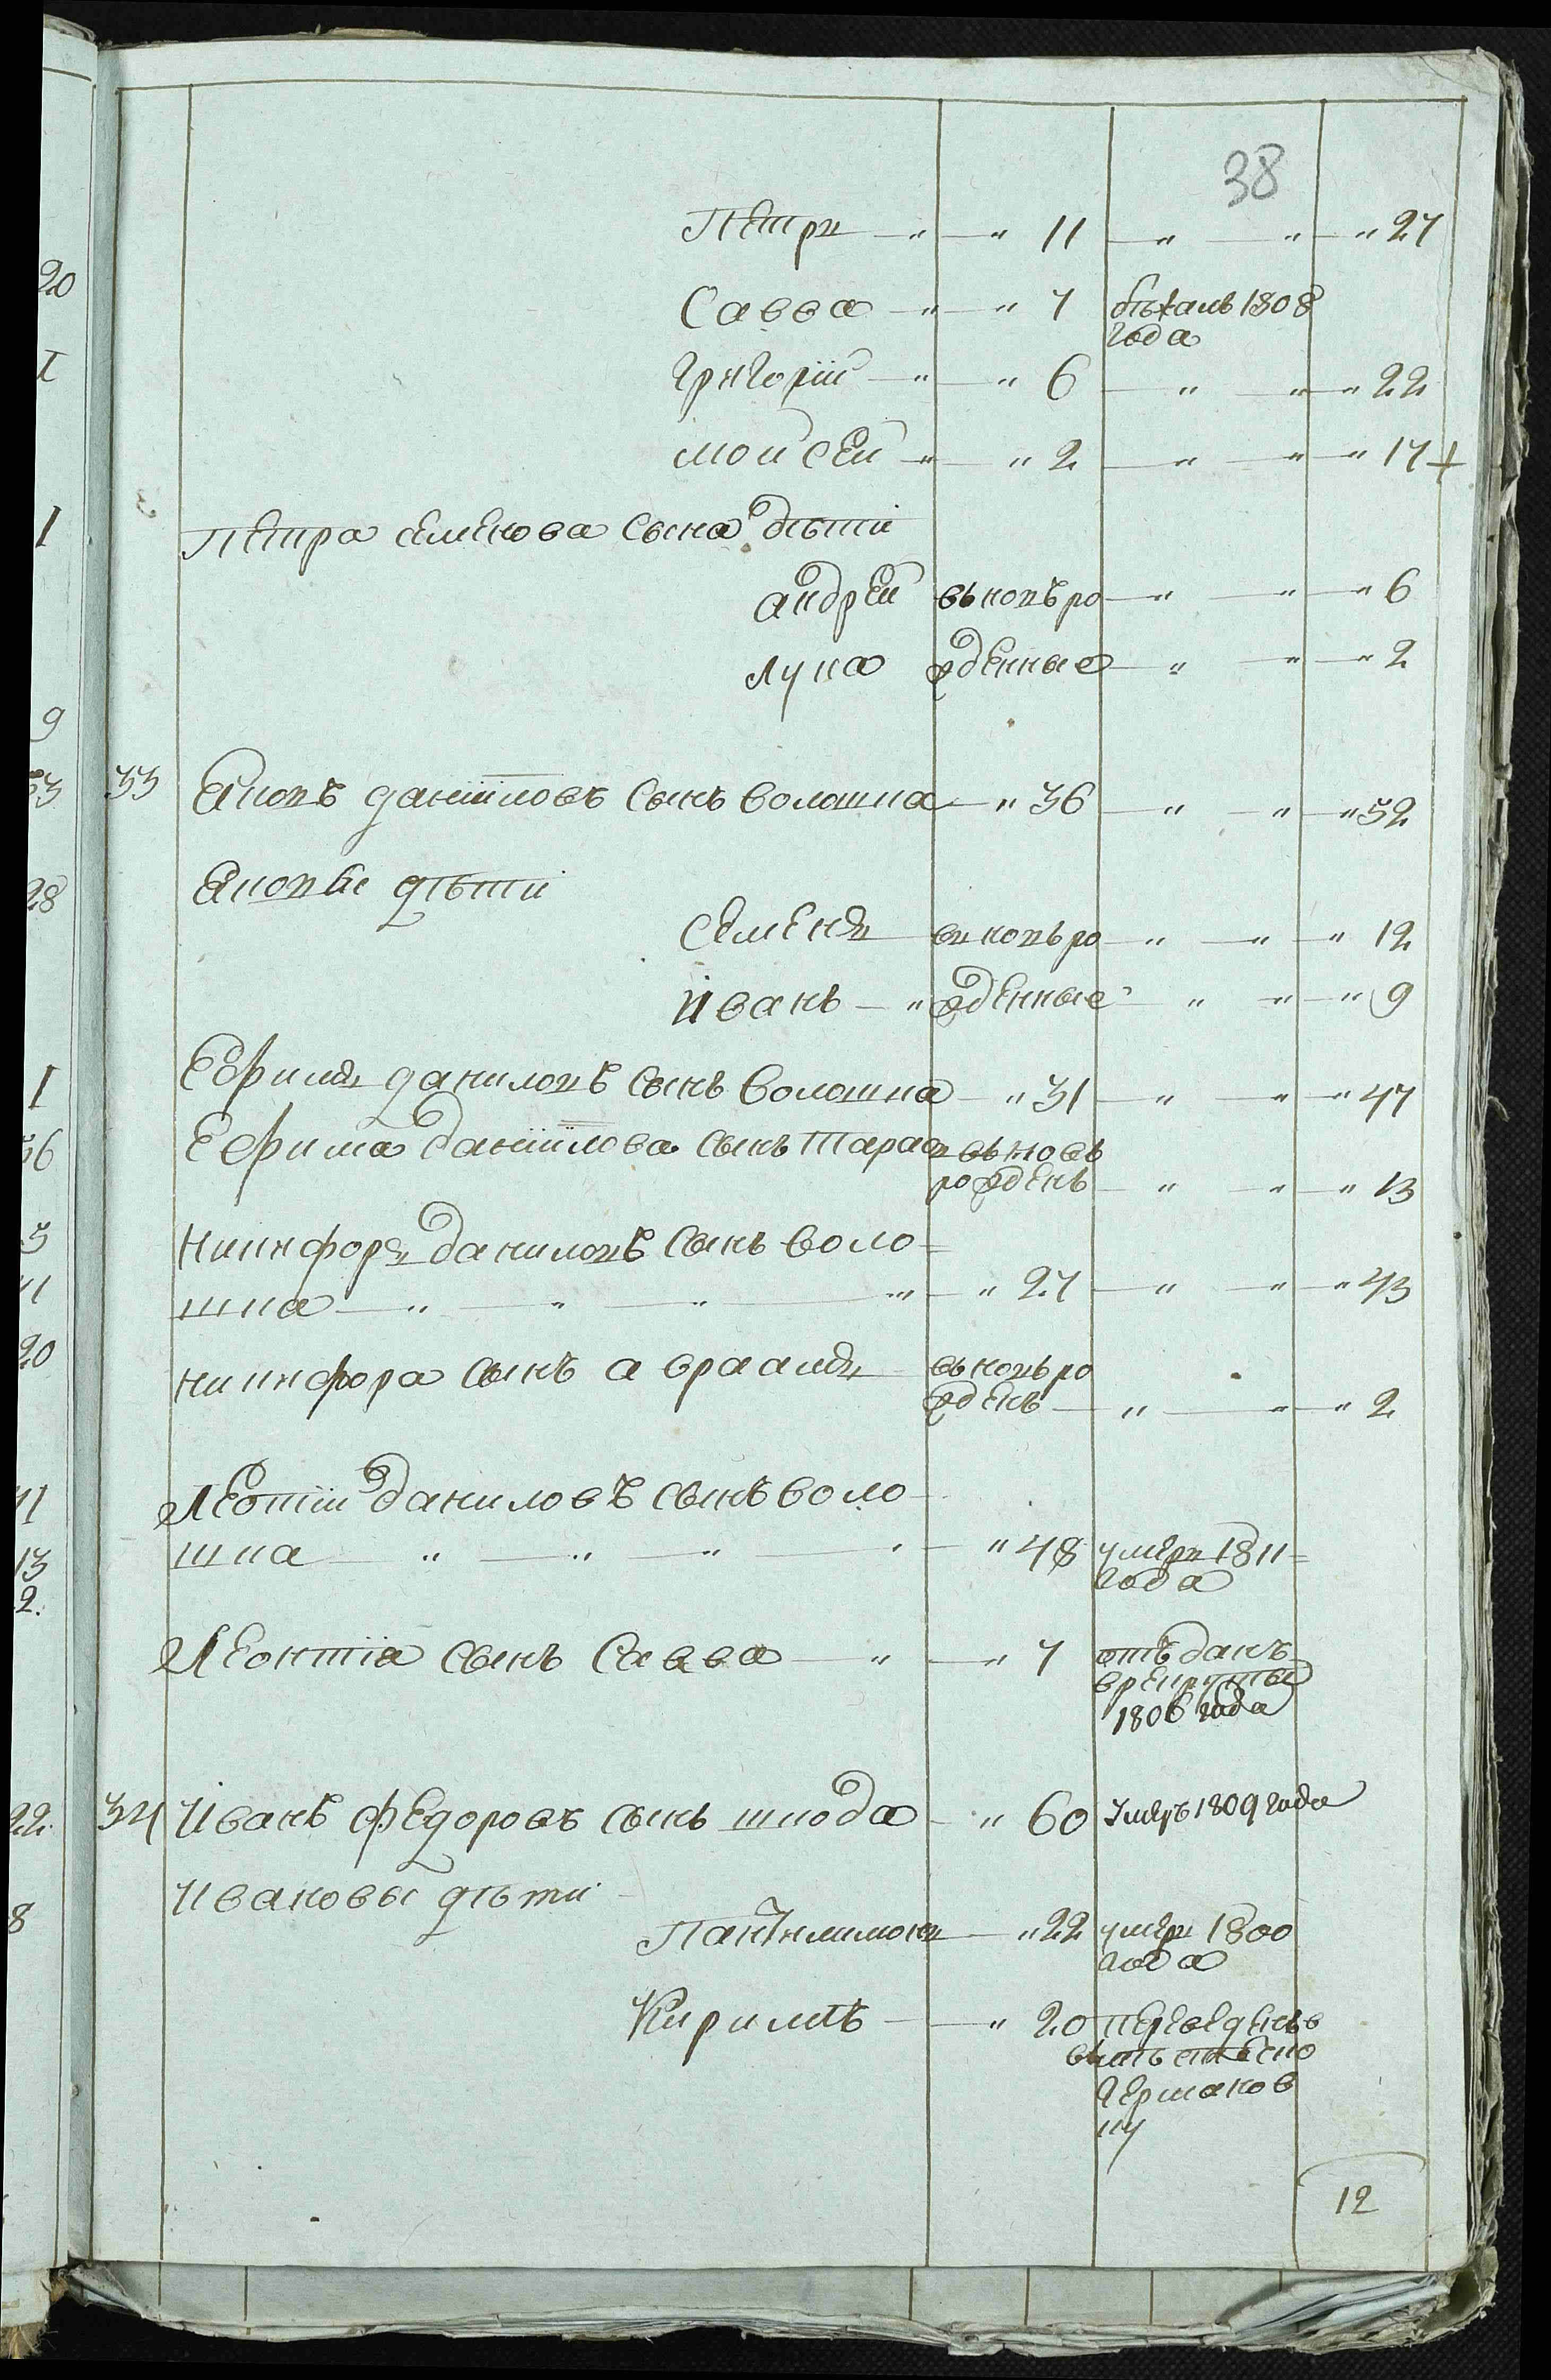 38
Петръ — " — " 11 — " — " — " 27
Савва — " — " 7 бѣжалъ 1808
года
Григорій — " — " 6 — " — " — " 22
Мойсей — " — " 2 — " — " — " 17 +
Петра Семенова сына дѣти
Андрей вьновь ро — " — " — " 6
Лука жденные — " — " — " 2
33 Яковъ Даніиловъ сынъ Волошка — " 36 — " — " — " 52
Яковы дѣти
Семенъ вновь ро — " — " — " 12
Иванъ — " жденные — " — " — " 9
Ефимъ Даниловъ сынъ Волошка — " 31 — " — " — " 47
Ефима Даніилова сынъ Тарасъ вьновь
рожденъ — " — " — " 13
Никифоръ Даниловъ сынъ Воло=
шка — " — " — " — " — " 27 — " — " — " 43
Никифора сынъ Авраамъ вьновь ро
жденъ — " — " — " 2
Леотій Даниловъ сынъ Воло
шка — " — " — " — " 48 умеръ 1811=
года
Леонтія сынъ Савва — " — " 7 отъданъ
врекруты
1806 года
34 Иванъ Федоровъ сынъ Шкода — " 60 Умеръ 1809 года
Ивановы дѣти
Пантилимонъ — " 22 умеръ 1800
года
Кирилъ — " 20 переведенъ в
Чермаков
ку
12
20
I
I
9
33
28
I
56
5
11
20
41
13
2.
22
8